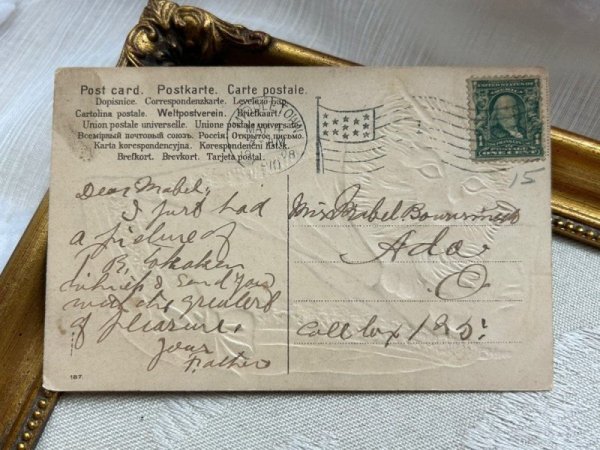 Post card. Postkarte. Carte postale.
Dopisnice. Correspondenzkarte. Levelező-Lap.
Cartolina postale. Weltpostverein. Briefkaart.
Union postale universelle. Unione postale universale.
Всемірный почтовый союзъ. Россія. Открытое письмо.
Karta korespondencyjna. Korespondenční lístek.
Brefkort. Brevkort. Tarjeta postal.
TOWN
IOWA
ONE CENT
15
Dear Mabel,
I just had
a picture of
B.
which I send you
with the greatest
of pleasure.
Your
Father
Miss Mabel
Ada
O.
Coll box 125.
187.